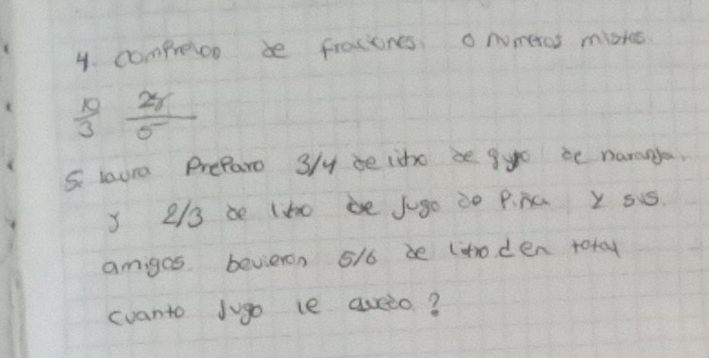 4. comprecoo de fracciones. o numeros mistos.
10/3 25/5
5. laura Preparo 3/4 de litro de jugo de naranja.
y 2/3 de litro de jugo de Piña y sus.
amigos. bevieron 5/6 de litro.d en total
cuanto jugo le quedo?